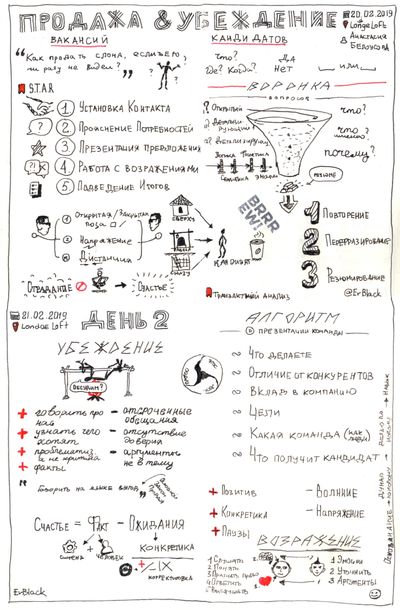 ПРОДАЖА & УБЕЖДЕНИЕ
20.02.2019
Londge Loft
Анастасия
Белоусова
ВАКАНСИЙ
КАНДИДАТОВ
"Как продать слона, если его
ни разу не видел?"
Что?
Где? Когда?
ДА
НЕТ
или
S.T.A.R
ВОРОНКА
ВОПРОСОВ
1 Установка Контакта
2 Прояснение Потребностей
3 Презентация предложения
4 Работа с возражениями
5 Подведение Итогов
Открытый
что?
что именно?
почему?
Резюме
1 Открытая/Закрытая
поза
2 Напряжение
3 Дистанция
Сверху
Наравне
Снизу
Кандидат
BRRR
EW!
1 Повторение
2 Перефразирование
3 Резюмирование
Страдание
Счастье
Транзактный анализ
@ErBlack
21.02.2019
Londge Loft
ДЕНЬ 2
АЛГОРИТМ
презентации команды
УБЕЖДЕНИЕ
Обсудим?
Что делаете
Отличие от конкурентов
Вклад в компанию
Цели
Какая команда (как люди)
Что получит кандидат
+ говорить про
нас
+ узнать чего
хотят
+ проблематиз.
и не критика
+ факты
- отсроченные
обещания
- отсутствие
доверия
- аргументы
не в тему
"Говорить на языке выгод"
+ Позитив
+ Конкретика
+ Паузы
- Волнние
- Напряжение
Счастье = Факт - Ожидания
Система + Человек
Конкретика
корректировка
ВОЗРАЖЕНИЕ
1 Слушать
2 Понять
4 Ответить
1 Эмоции
2 Уточнить
3 Аргументы
ErBlack